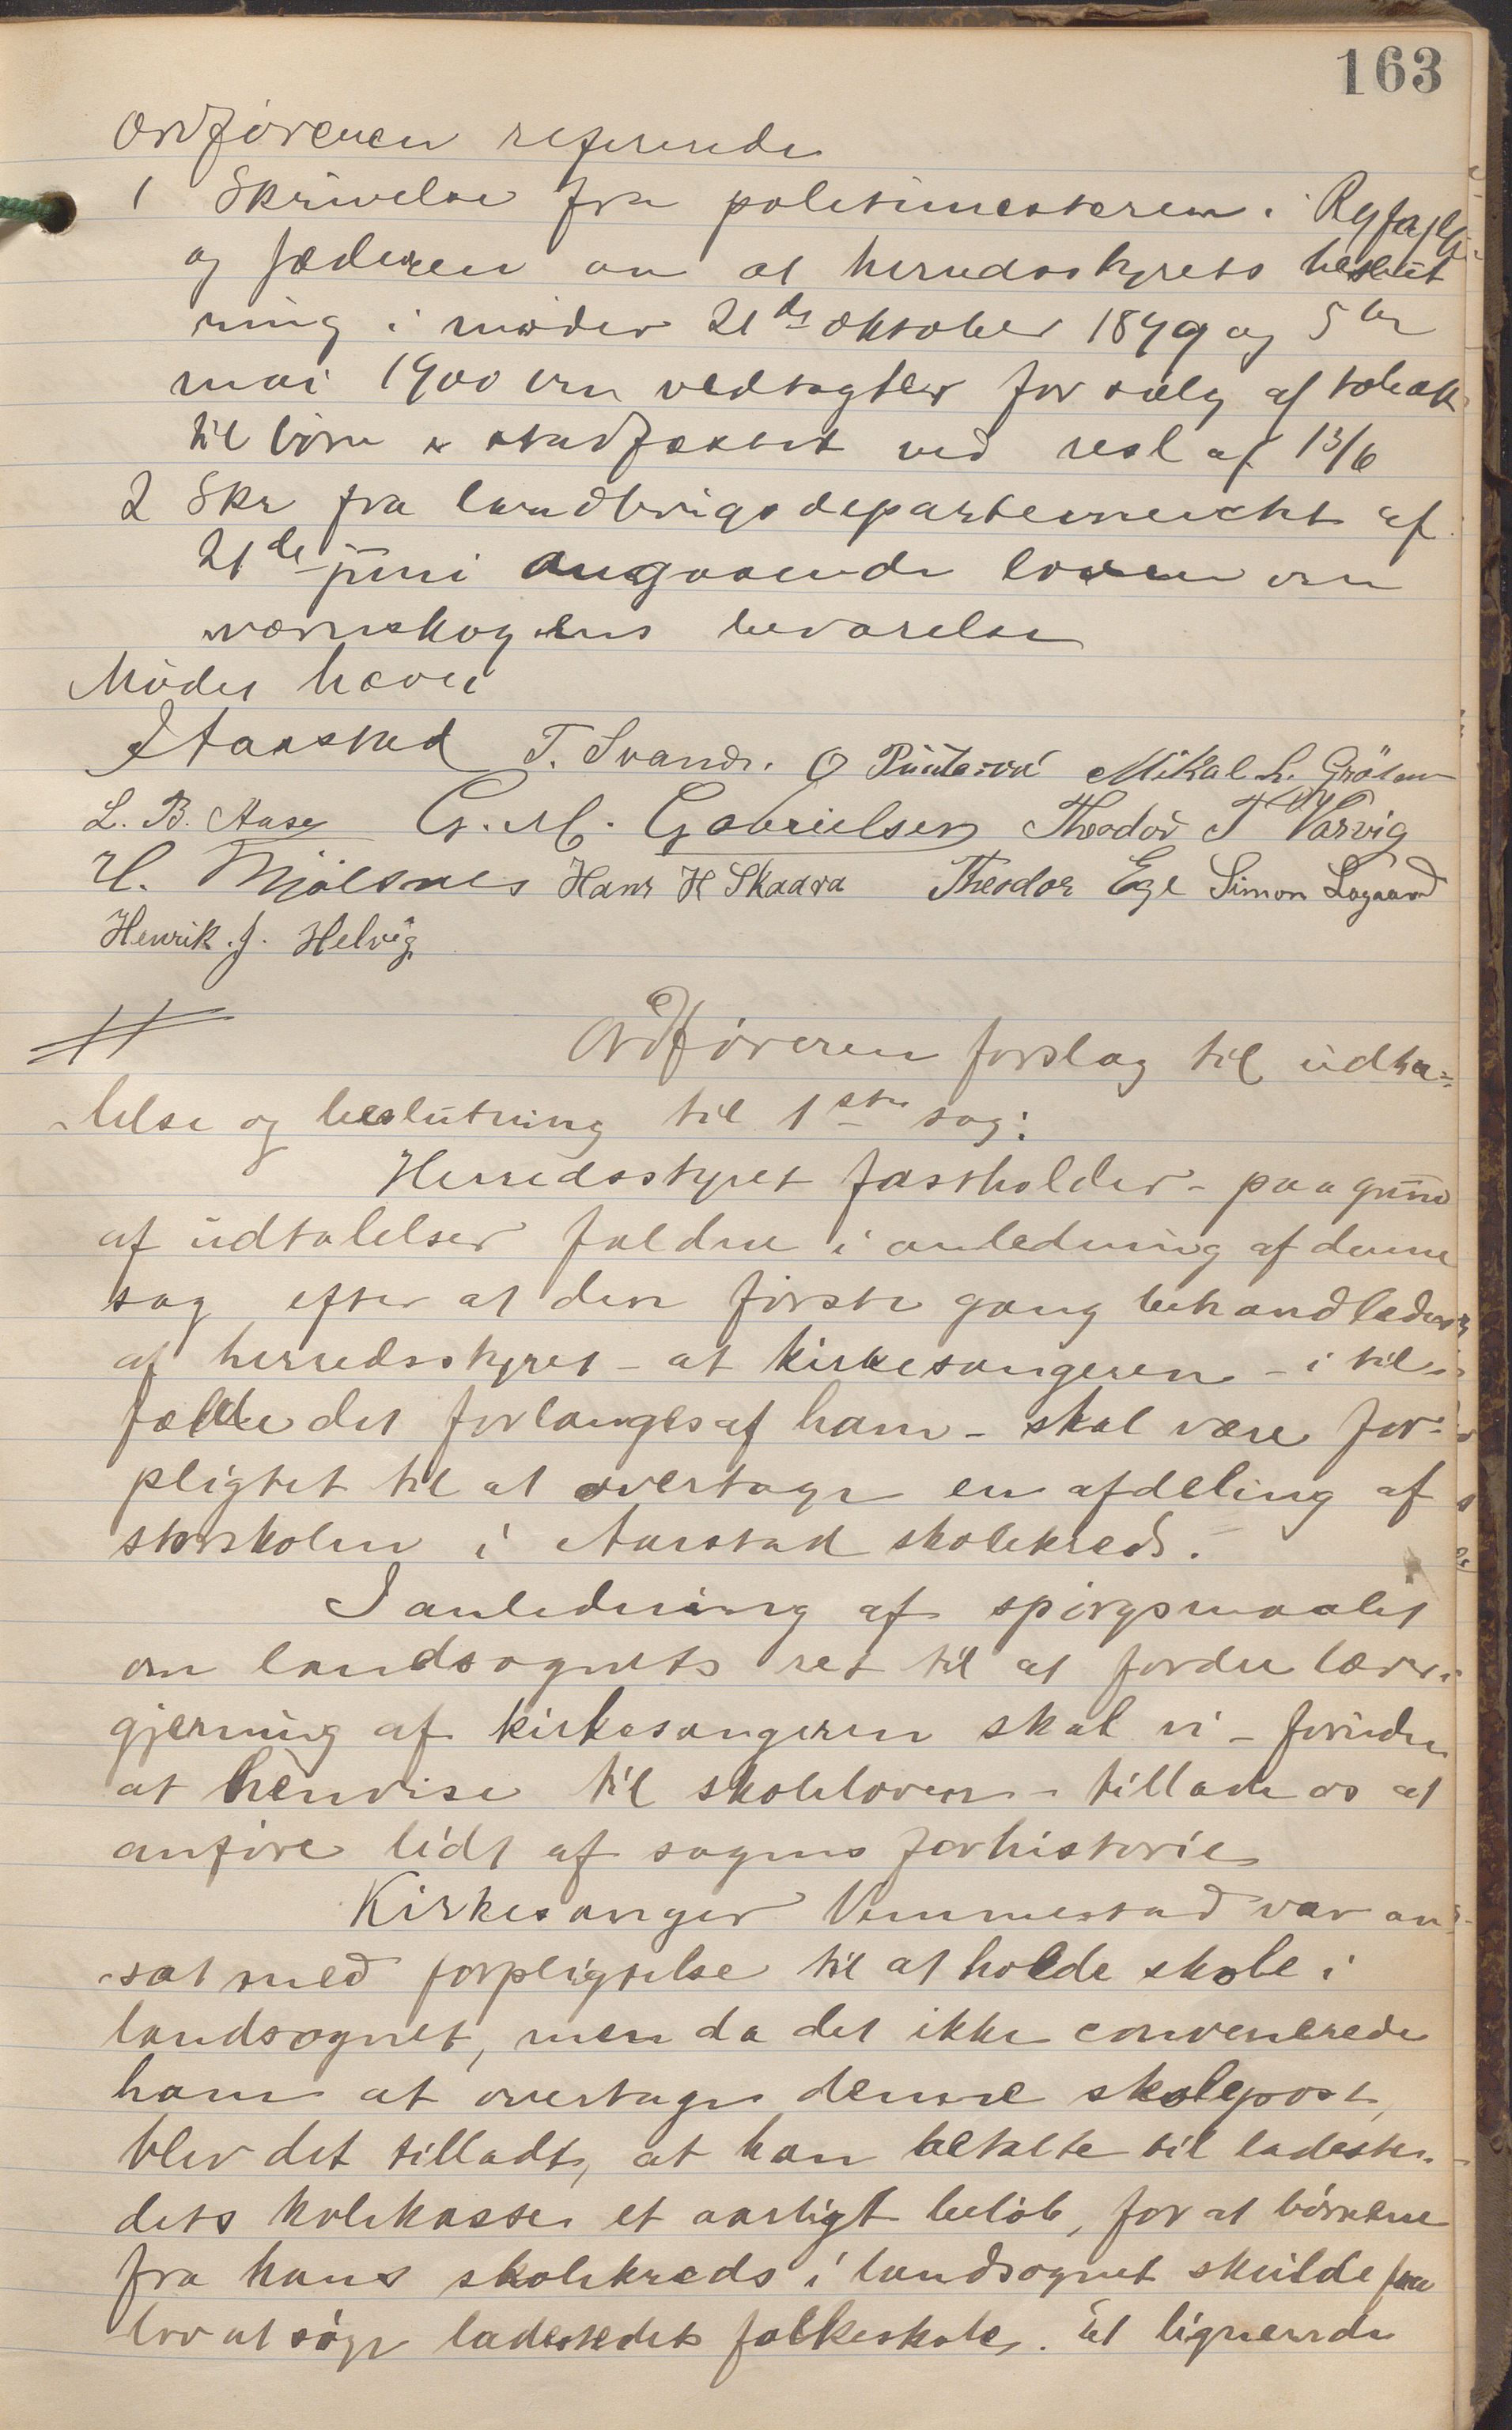 163
Ordføreren refererede
1 Skrivelse fra politimesteren i Ryfylke
og Jæderen om at herredsstyrets beslut
ning i møder 21de oktober 1899 og 5te
mai 1900 om vedtægter for salg af tobak
til børn er stadfæstet ved resl af 13/6
2 Skr fra landbrugsdepartementet af
21de juni angaaende loven om
værnskogens bevarelse
Mødet hævet
Aarstad T. Svanes. O Puntervol Mikal L. Grösem
L. B. Aase G. M. Gabrielsen Theodor T Varvig
H. Mjølsnes Hans H Skaara Theodor Ege Simon Løgaard
Henrik J. Helvig
Ordføreren forslag til udta-
-lelse og beslutning til 1ste sag:
Herredsstyret fastholder - paa grund
af udtalelser faldne i anledning af denne
sag efter at den første gang behandledes
af herredsstyret - at kirkesangeren - i til-
fælde det forlanges af ham - skal være for-
pligtet til at overtage en afdeling af
storskolen i Aarstad skolekreds.
I anledning af spørgsmaalet
om landsognets ret til at fordre lærer-
gjerning af kirkesangeren skal vi - foruden
at henvise til skoleloven - tillade os at
anføre lidt af sagens forhistorie
Kirkesanger Vemmestad var an-
-sat med forpligtelse til at holde skole i
landsognet, men da det ikke convenerede
ham at overtage denne skolepost,
blev det tilladt, at han betalte til ladeste-
dets kolekasse et aarligt beløb, for at børnene
fra hans skolekreds i landsognet skulde faa
lov at søge ladestedets folkeskole. Et lignende